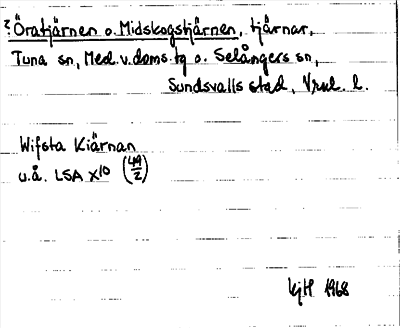 ? Öratjärnen o. Midskogstjärnen, tjärnar,
Tuna sn, Med. v. doms. tg o. Selångers sn,
Sundsvalls stad, Vnul. l.
Wifsta Kiärnan
u.å. LSA X10 (49/2)
1968